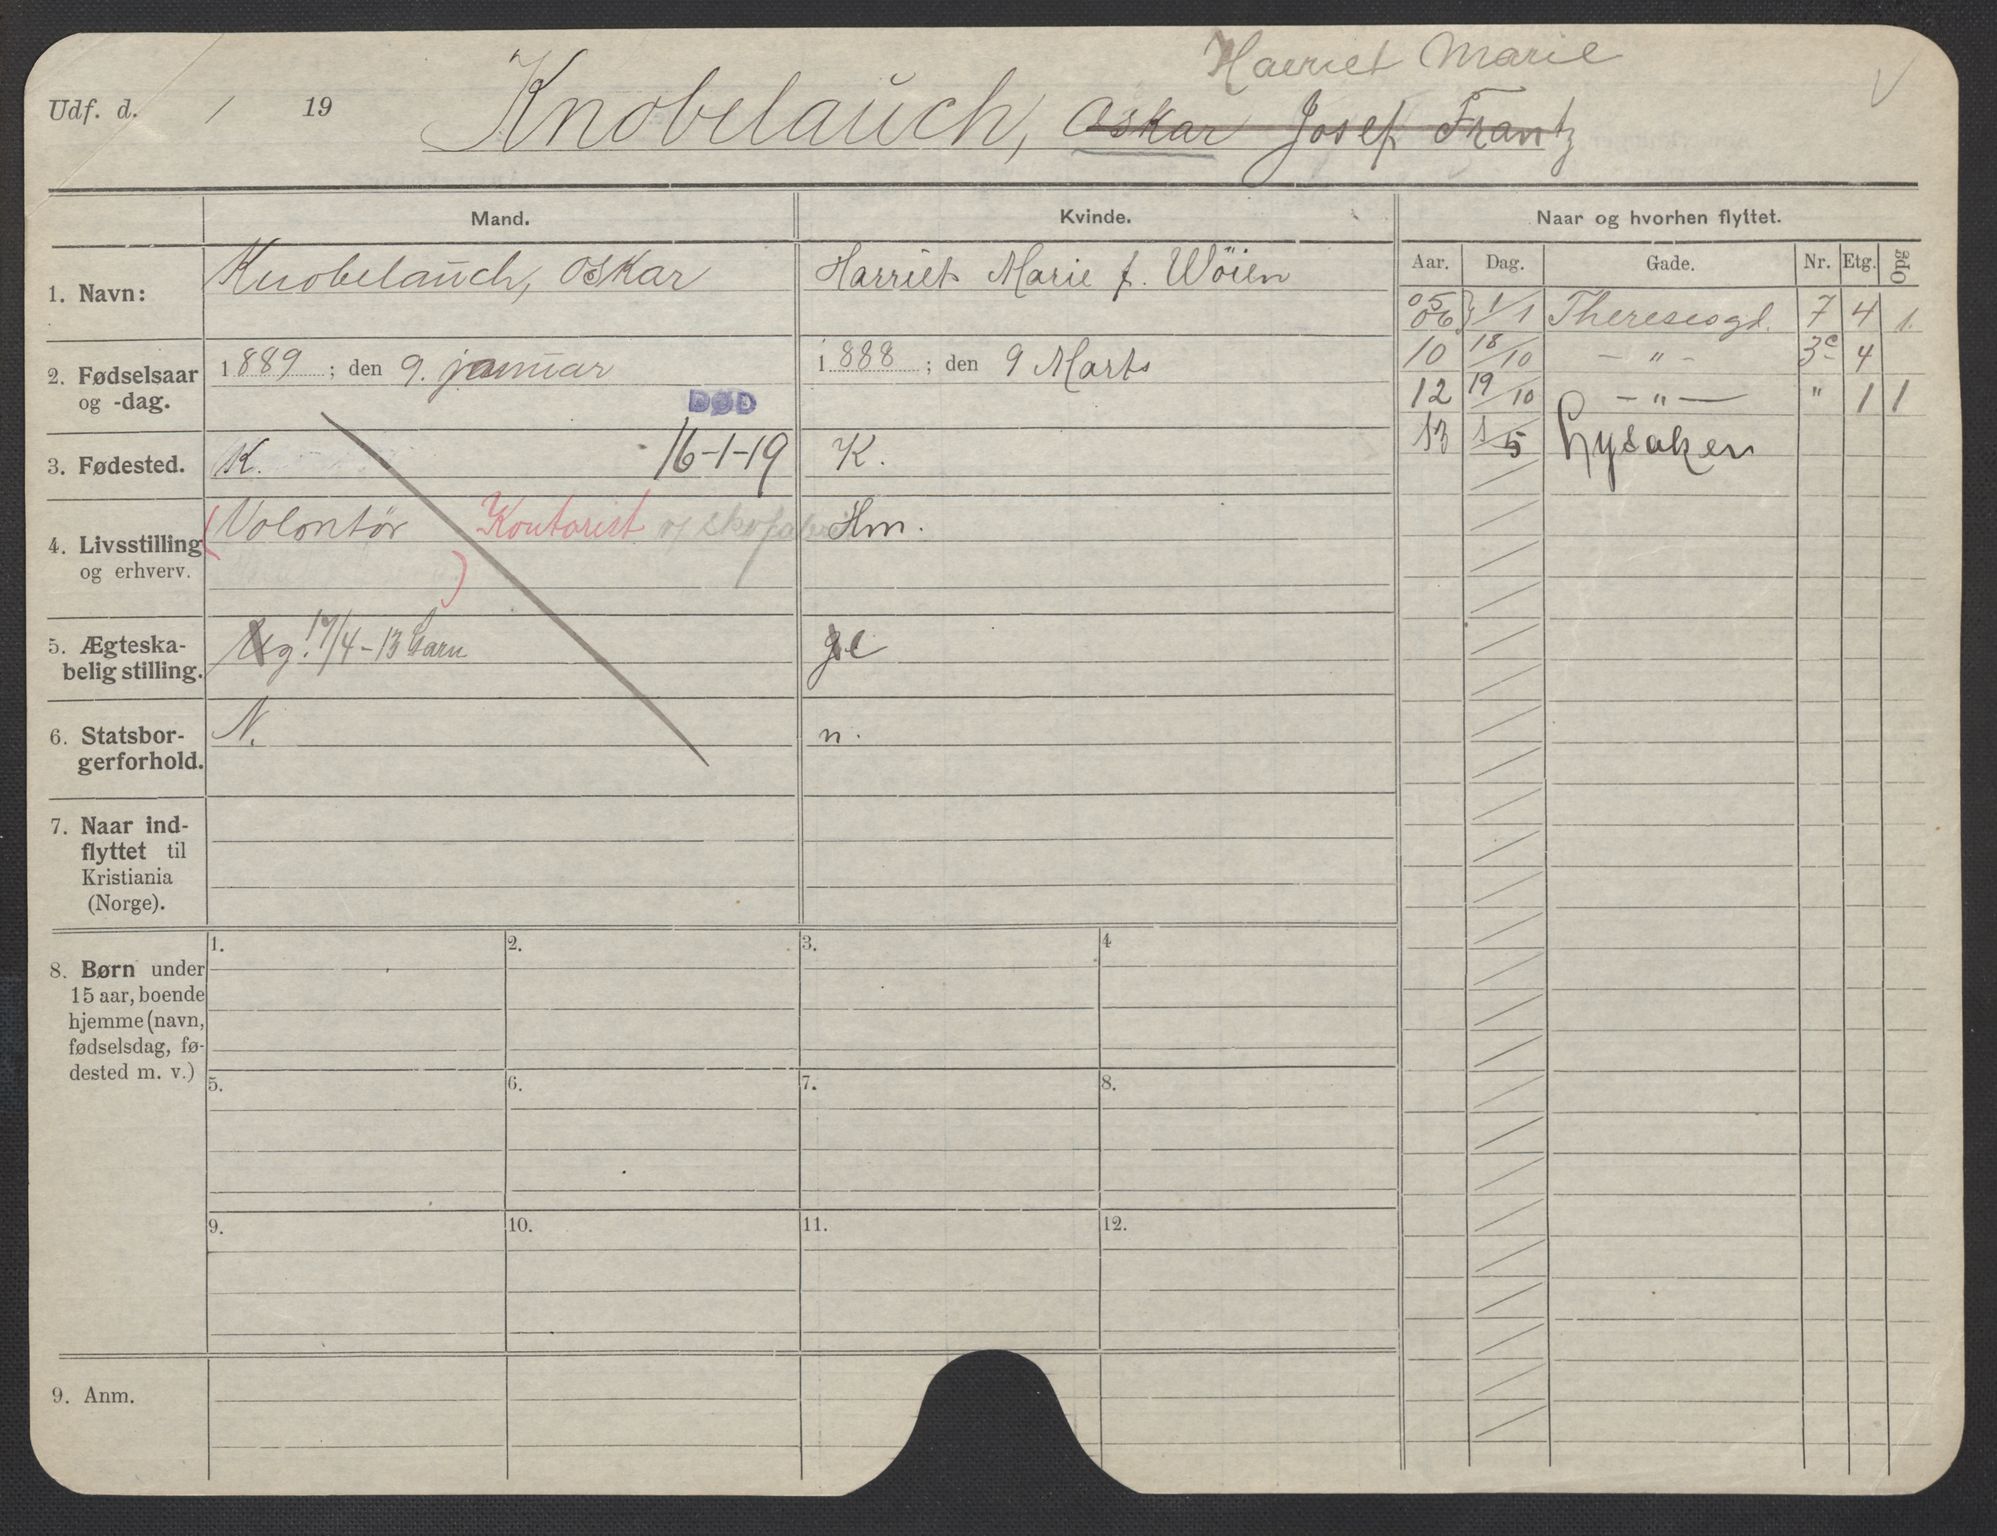 Harriet Marie
Udf. d. / 19 Knobelauch, Oskar Josef Frantz
Mand. Kvinde. Naar og hvorhen flyttet.
Aar. Dag. Gade. Nr. Etg. Opg
1. Navn: Knobelauch, Oskar Harriet Marie f. Wöien
05 06 } 1/1 Theresesgd. 7 4 1.
10 18/10 — " — 3c 4
12 19/10 — " — " 1 1
13 1/5 Lysaker
2. Fødselsaar og -dag. 1889; den 9. januar 1888; den 9 Marts
DØD
3. Fødested. K. 16-1-19 K.
4. Livsstilling og erhverv. (Volontør) Kontorist Hm.
5. Ægteskabelig stilling. Ug. 17/4-13 e
6. Statsborgerforhold. N. n.
7. Naar indflyttet til Kristiania (Norge).
8. Børn under 15 aar, boende hjemme (navn, fødselsdag, fødested m. v.)
1. 2. 3. 4
5. 6. 7. 8.
9. 10. 11. 12.
9. Anm.